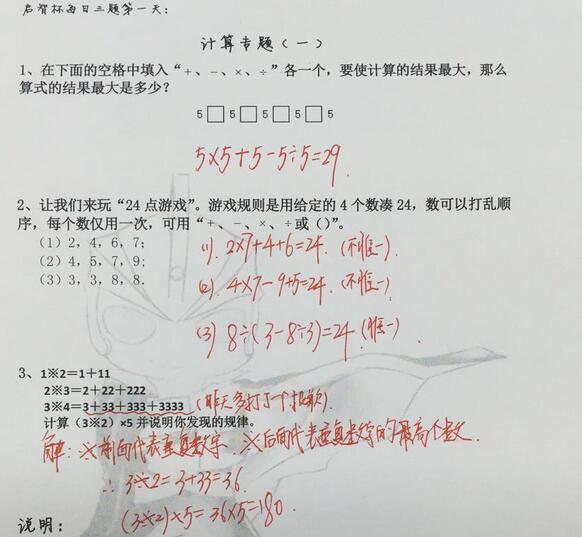 启智杯每日三题第一天：
计算专题（一）
1、在下面的空格中填入“+、-、×、÷”各一个，要使计算的结果最大，那么
算式的结果最大是多少？
5□5□5□5□5
5×5+5-5÷5=29
2、让我们来玩“24点游戏”。游戏规则是用给定的4个数凑24，数可以打乱顺
序，每个数仅用一次，可用“+、-、×、÷或（）”。
（1）2，4，6，7； (1). 2×7+4+6=24. (不唯一)
（2）4，5，7，9; (2). 4×7-9+5=24. (不唯一)
（3）3，3，8，8. (3) 8÷(3-8÷3)=24 (唯一)
3、1※2=1+11
2※3=2+22+222
3※4=3+33+333+3333 (昨天多打了个)
计算（3※2）×5并说明你发现的规律。
解：※前面代表重复数字．※后面代表重复数字的最高个数．
∴ 3※2=3+33=36.
(3※2)×5=36×5=180.
说明：